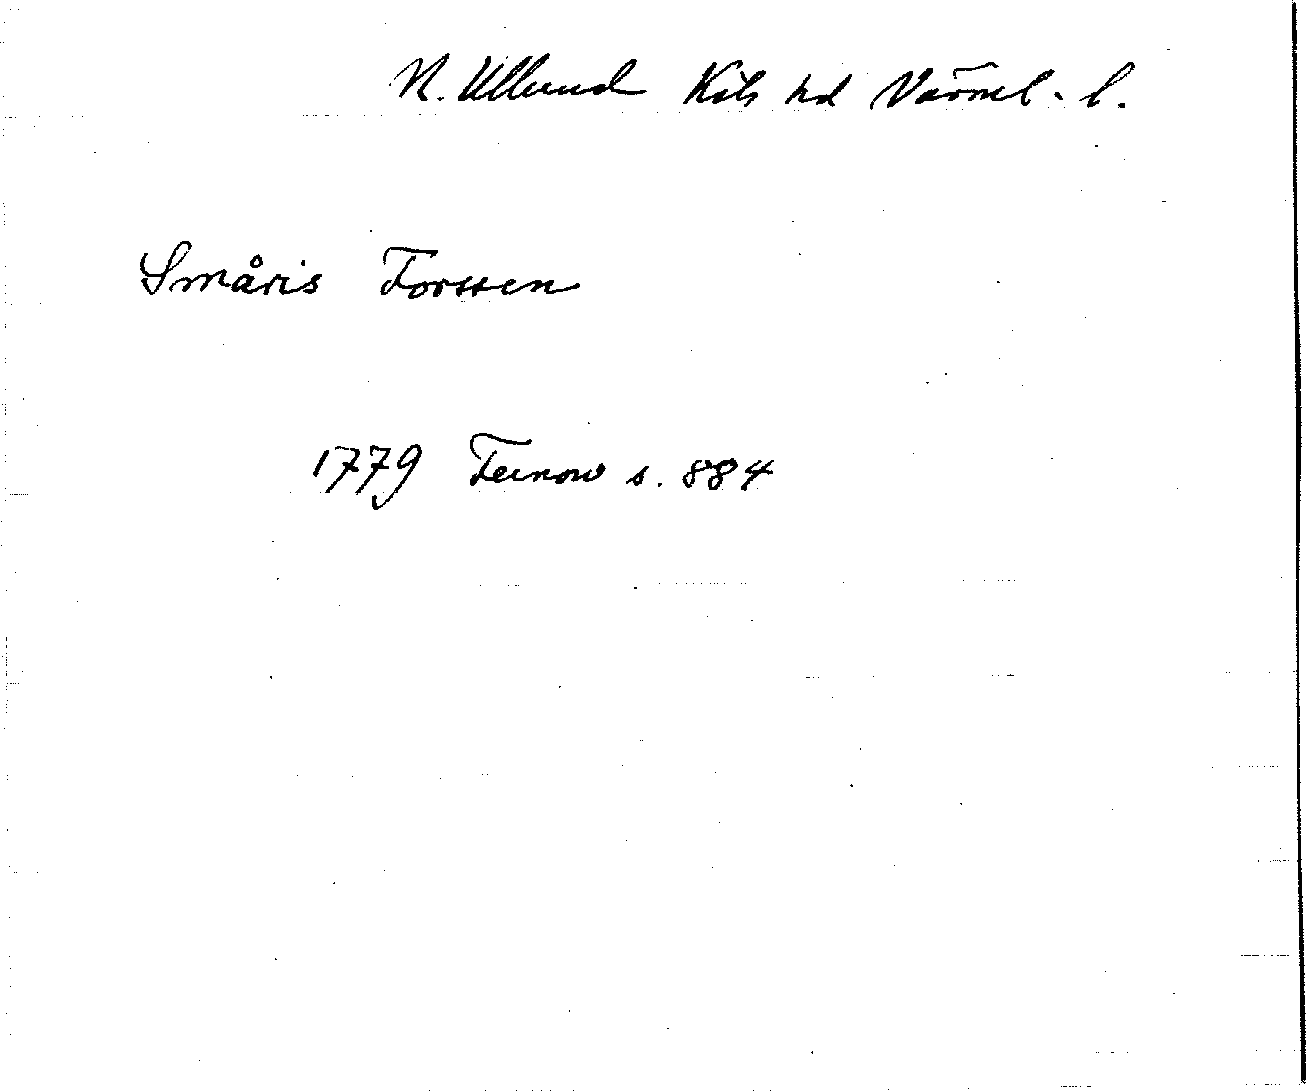 N. Ullerud Kils hd Värml. l.
Småris Forssen
1779 Fernow s. 884